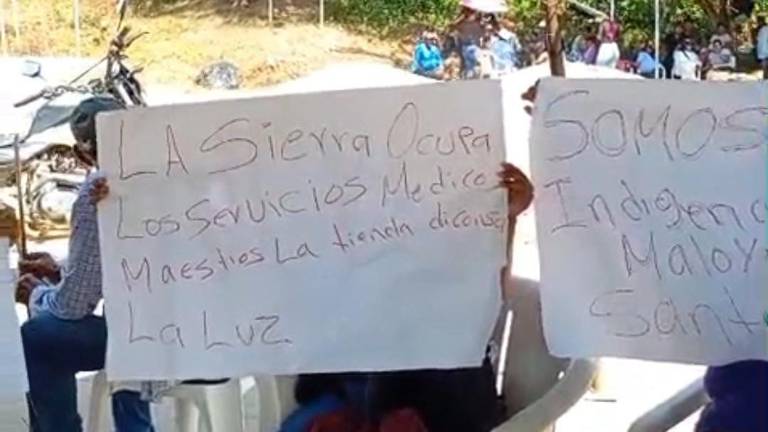 LA Sierra Ocupa
Los Servicios Medico
Maestros La tienda diconsa
La Luz
SOMOS
Indigena
Maloy
Sant